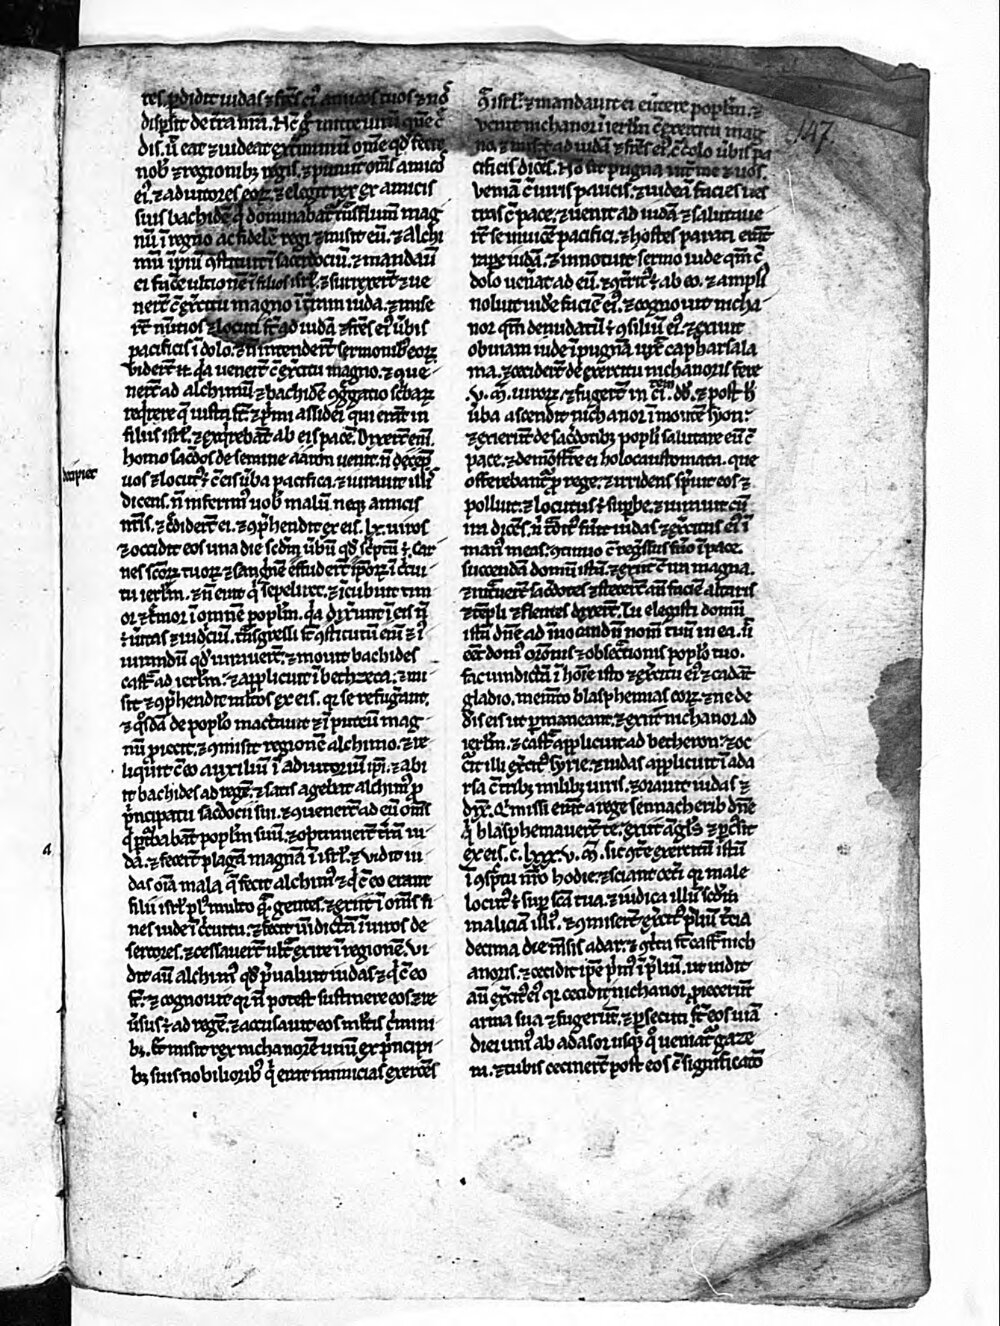 tes. ꝑdidit iudas ⁊ fr̄s ei᷒ amicos tuos ⁊ nos
disꝑsit de t̄ra nr̄a. Nc̄ g̊ mitte uirū quē c̄
dis. ut eat ⁊ uideat ext̄miniū om̄e qd̄ fecit
nob᷒ ⁊ regionib᷒ regis. ⁊ puniat om̄s amicos
ei᷒. ⁊ adiutores eoꝝ. ⁊ elegit rex ex amicis
suis bachidē q̇ dominabat̄ t̄ns flum̄ mag
nū ī regno ac fidelē regi ⁊ misit eū. ⁊ alchi
mū īpiū ꝯstituit ī sac̄dociū. ⁊ mandauit
ei fac̄e ultionē ī filios isrl̄. ⁊ surrexer̄t ⁊ ue
ner̄t c̄ ex̄citu magno ī t̄ram iuda. ⁊ mise
rt̄ nūtios ⁊ locuti st̄ ad iudā ⁊ fr̄s ei᷒ ūbis
pacificis ī dolo. ⁊ n̄ intender̄t sermonib᷒ eoꝝ
vider̄t n̄. q̄a uener̄t c̄ ex̄citu magno. ⁊ ꝯue
ner̄t ad alchimū ⁊ bachidē ꝯg̊gatio scbaꝝ
req̇rere q̄ iusta st̄. ⁊ p̄mi assidei qui erāt in
filiis isrl̄. ⁊ exq̇rebāt ab eis pacē. Dixer̄t eni̅.
homo sac̄dos de semine aaron uenit. n̄ decipꝫ
decipiet
uos ⁊ locut᷒ ē c̄ eis ūba pacifica. ⁊ iurauit illis
dicens. n̄ inferim᷒ uob᷒ malū. neqꝫ amicis
nr̄is. ⁊ c̄dider̄t ei. ⁊ ꝯp̄hendit ex eis. lx. uiros
⁊ occidit eos una die scdm̄ ūbū qd̄ sc̄ptū ē. Car
nes scōꝝ tuoꝝ ⁊ sangnē effuder̄t ip̄oꝝ ī c̄cui
tu ierlm̄. ⁊ n̄ erat q̇ sepeliret. ⁊ īcubuit tim
or ⁊ t̄mor ī omnē poplm̄. q̄a dixer̄t ī eis n̄
ē ūitas ⁊ iudiciū. t̄nsgressi st̄ ꝯstitutū eni̅ ⁊ i᷒
iurandū qd̄ iurauer̄t. ⁊ mouit bachides
cast̄ ad ierlm̄. ⁊ applicuit ī bethzeca. ⁊ mi
sit ⁊ ꝯp̄hendit mltos ex eis. qi se refugant̄.
⁊ q̊sdā de poplo mactauit ⁊ ī puteū mag
nū piecit. ⁊ ꝯmisit regionē alchimo. ⁊ re
liquit c̄ eo auxiliū ī adiutoriū ip̄i. ⁊ abi
it bachides ad regē. ⁊ satis agebat alchim᷒ ꝓ
p̄ncipatu sac̄docii sui. ⁊ ꝯuener̄t ad eū om̄s
q̇ ꝑt̄babāt poplm̄ suū. ⁊ optinuer̄t t̄rā iu
dā. ⁊ fecer̄t plagā magnā ī isrl̄. ⁊ vidit iu
das oīa mala q̄ fecit alchim᷒ ⁊ q̇ c̄ eo erant
filiis isrl̄ pl᷒ multo q̄ gentes. ⁊ exiit ī om̄s fi
nes iude ī c̄cuitu. ⁊ fecit uīdictā ī uiros de
sertores. ⁊ cessauer̄t ult̄ exire ī regionē. Vi
dit au̅ alchim᷒ qd̄ p̄ualuit iudas ⁊ q̇ c̄ eo
st̄. ⁊ cognouit qi n̄ potest sustinere eos ⁊ re
ūsus ē ad regē. ⁊ accusauit eos mltis c̄mini
b᷒. Et misit rex nichanorē unū ex p̄ncipi
bꝫ suis nobiliorib᷒ q̇ erat inimicias exerces
147.
q̄ isrl̄. ⁊ mandauit ei eūtere poplm̄. ⁊
venit nichanor ī ierlm̄ c̄ ex̄citu mag
no. ⁊ misit ad iudā ⁊ fr̄s ei᷒ c̄ dolo ūbis pa
cificis dicēs. Nō sit pugna int̄ me ⁊ uos.
veniā c̄ uiris paucis. ⁊ uideā facies ves
tras c̄ pace. ⁊ uenit ad iudā ⁊ salutaue
rt̄ se inuicē pacifici. ⁊ hostes parati erāt
rape iudā. ⁊ innotuit sermo iude qm̄ c̄
dolo uen̄at ad eū. ⁊ ꝯt̄rit᷒ ē ab eo. ⁊ ampli᷒
noluit uide faciē ei᷒. ⁊ cognouit nicha
nor qm̄ denudatū ē ꝯsiliū ei᷒. ⁊ exiuit
obuiam iude ī pugnā iux̄ capharsala
ma. ⁊ cecider̄t de ex̄citu nichanoris fere
.v. m̄. uiroꝝ. ⁊ fuger̄t in ciuitatem dd̄. ⁊ post h̄
ūba ascendit nichanor ī montē syon.
⁊ exier̄t de sac̄dotibꝫ popli salutare eū c̄
pace. ⁊ demōstr̄e ei holocaustomata. que
offerebant̄ ꝓ rege. ⁊ irridens spreuit eos ⁊
polluit. ⁊ locutus ē suꝑbe. ⁊ iurauit cū
ira dicēs. n̄ t̄dit᷒ fu̅it iudas ⁊ ex̄citus ei᷒ ī
man᷒ meas. ꝯtinuo c̄ regressus fu̅o ī pace.
succendā domū istā. ⁊ exiit c̄ ira magna.
⁊ intuer̄t sac̄dotes ⁊ steter̄t an̄ faciē altaris
⁊ tēpli ⁊ flentes dixer̄t. Tu elegisti domū
istā dn̄e ad īuocandū nom̄ tuū in ea. ut
eēt dom᷒ or̄onis ⁊ obsecr̄ionis poplo tuo.
fac uindictā ī hoīe isto ⁊ ex̄citu ei᷒ ⁊ cadāt
gladio. memēto blasphemias eoꝝ. ⁊ ne de
dis eis ut ꝑmaneant. ⁊ exiit nichanor ad
ierlm̄. ⁊ cast̄ applicuit ad bethoron. ⁊ oc
c̄rit illi ex̄cit᷒ syrie. ⁊ iudas applicuit ī ada
rsa c̄ t̄ibꝫ milibꝫ uiris. ⁊ orauit iudas ⁊
dix̄. Qi missi erāt a rege sennacherib dn̄e
qi blasphemauer̄t te. exiit agls̄ ⁊ ꝑcussit
ex eis. c. lxxx. v. m̄. sic ꝯt̄e ex̄ercitū istū
ī ꝯspc̄tu nr̄o hodie. ⁊ sciant cet̄i qi male
locut᷒ ē suꝑ sc̄a tua. ⁊ iudica illū scdm̄
maliciā illi᷒. ⁊ ꝯmiser̄t ex̄cit᷒ p̄liū t̄cia
decima die mēsis adar. ⁊ ꝯt̄ta st̄ cast̄ nich
anoris. ⁊ cecidit ip̄e p̄m᷒ ī p̄liū. ut uidit
au̅ ex̄cit᷒ ei᷒ qi cecidit nichanor. piecer̄t
arma sua ⁊ fuger̄t. ⁊ ꝑsecuti st̄ eos uiā
diei uni᷒ ab adasor usqꝫ q̊ ueniat̄ gaze
ra. ⁊ tubis cecinert̄ post eos c̄ significatō